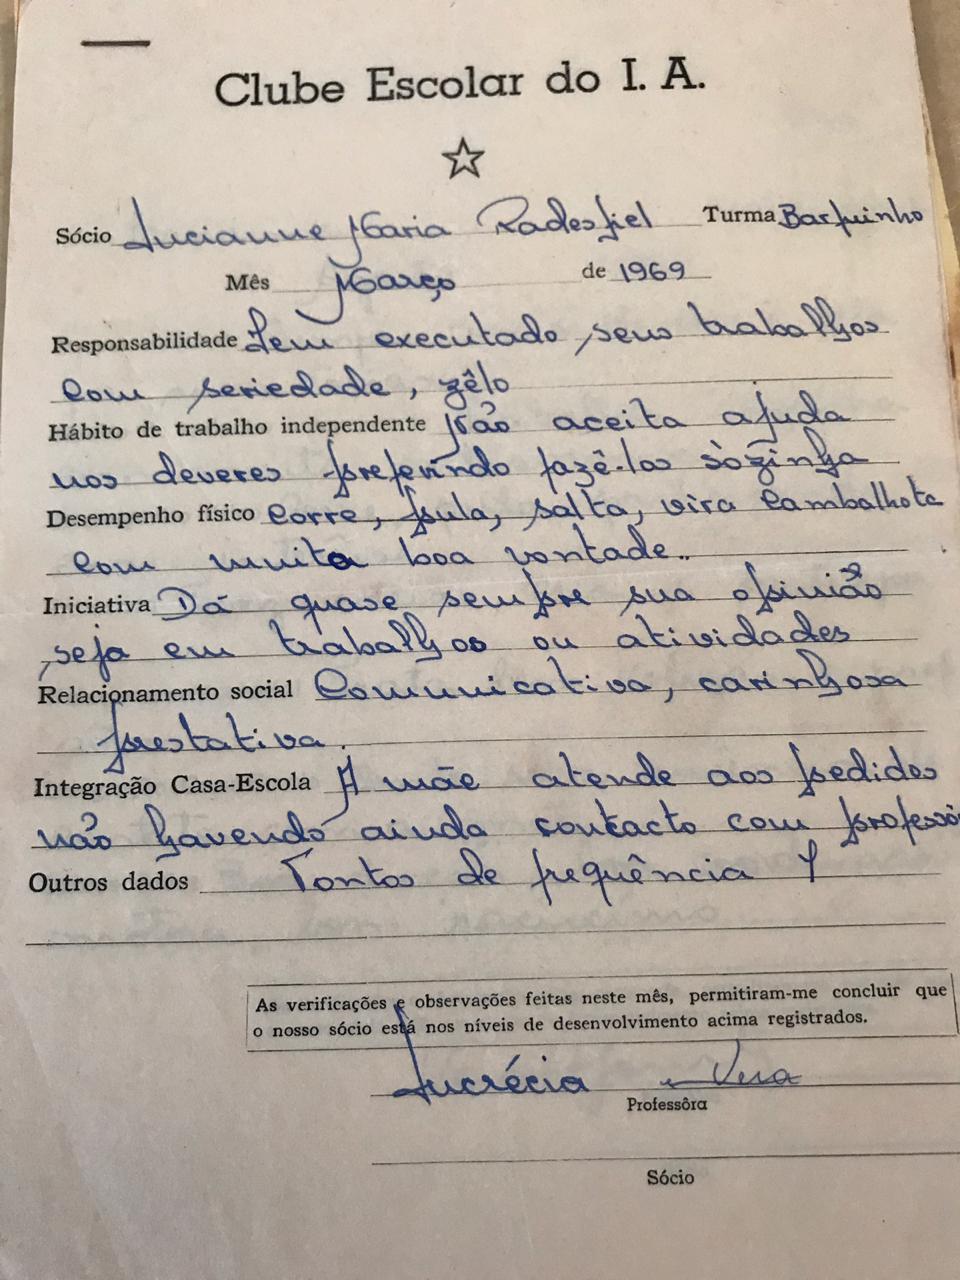 Clube Escolar do I. A.
Sócio Lucianne Maria Radesfiel Turma Barquinho
Mês Março de 1969
Responsabilidade Tem executado seus trabalhos
com seriedade, zêlo
Hábito de trabalho independente Não aceita ajuda
nos deveres preferindo fazê-los sòzinha
Desempenho físico Corre, pula, salta, vira cambalhota
com muita boa vontade..
Iniciativa Dá quase sempre sua opinião
seja em trabalhos ou atividades
Relacionamento social Comunicativa, carinhosa
prestativa.
Integração Casa-Escola A mãe atende aos pedidos
não havendo ainda contacto com professô
Outros dados Pontos de frequência
As verificações e observações feitas neste mês, permitiram-me concluir que
o nosso sócio está nos níveis de desenvolvimento acima registrados.
Lucrécia Vera
Professôra
Sócio